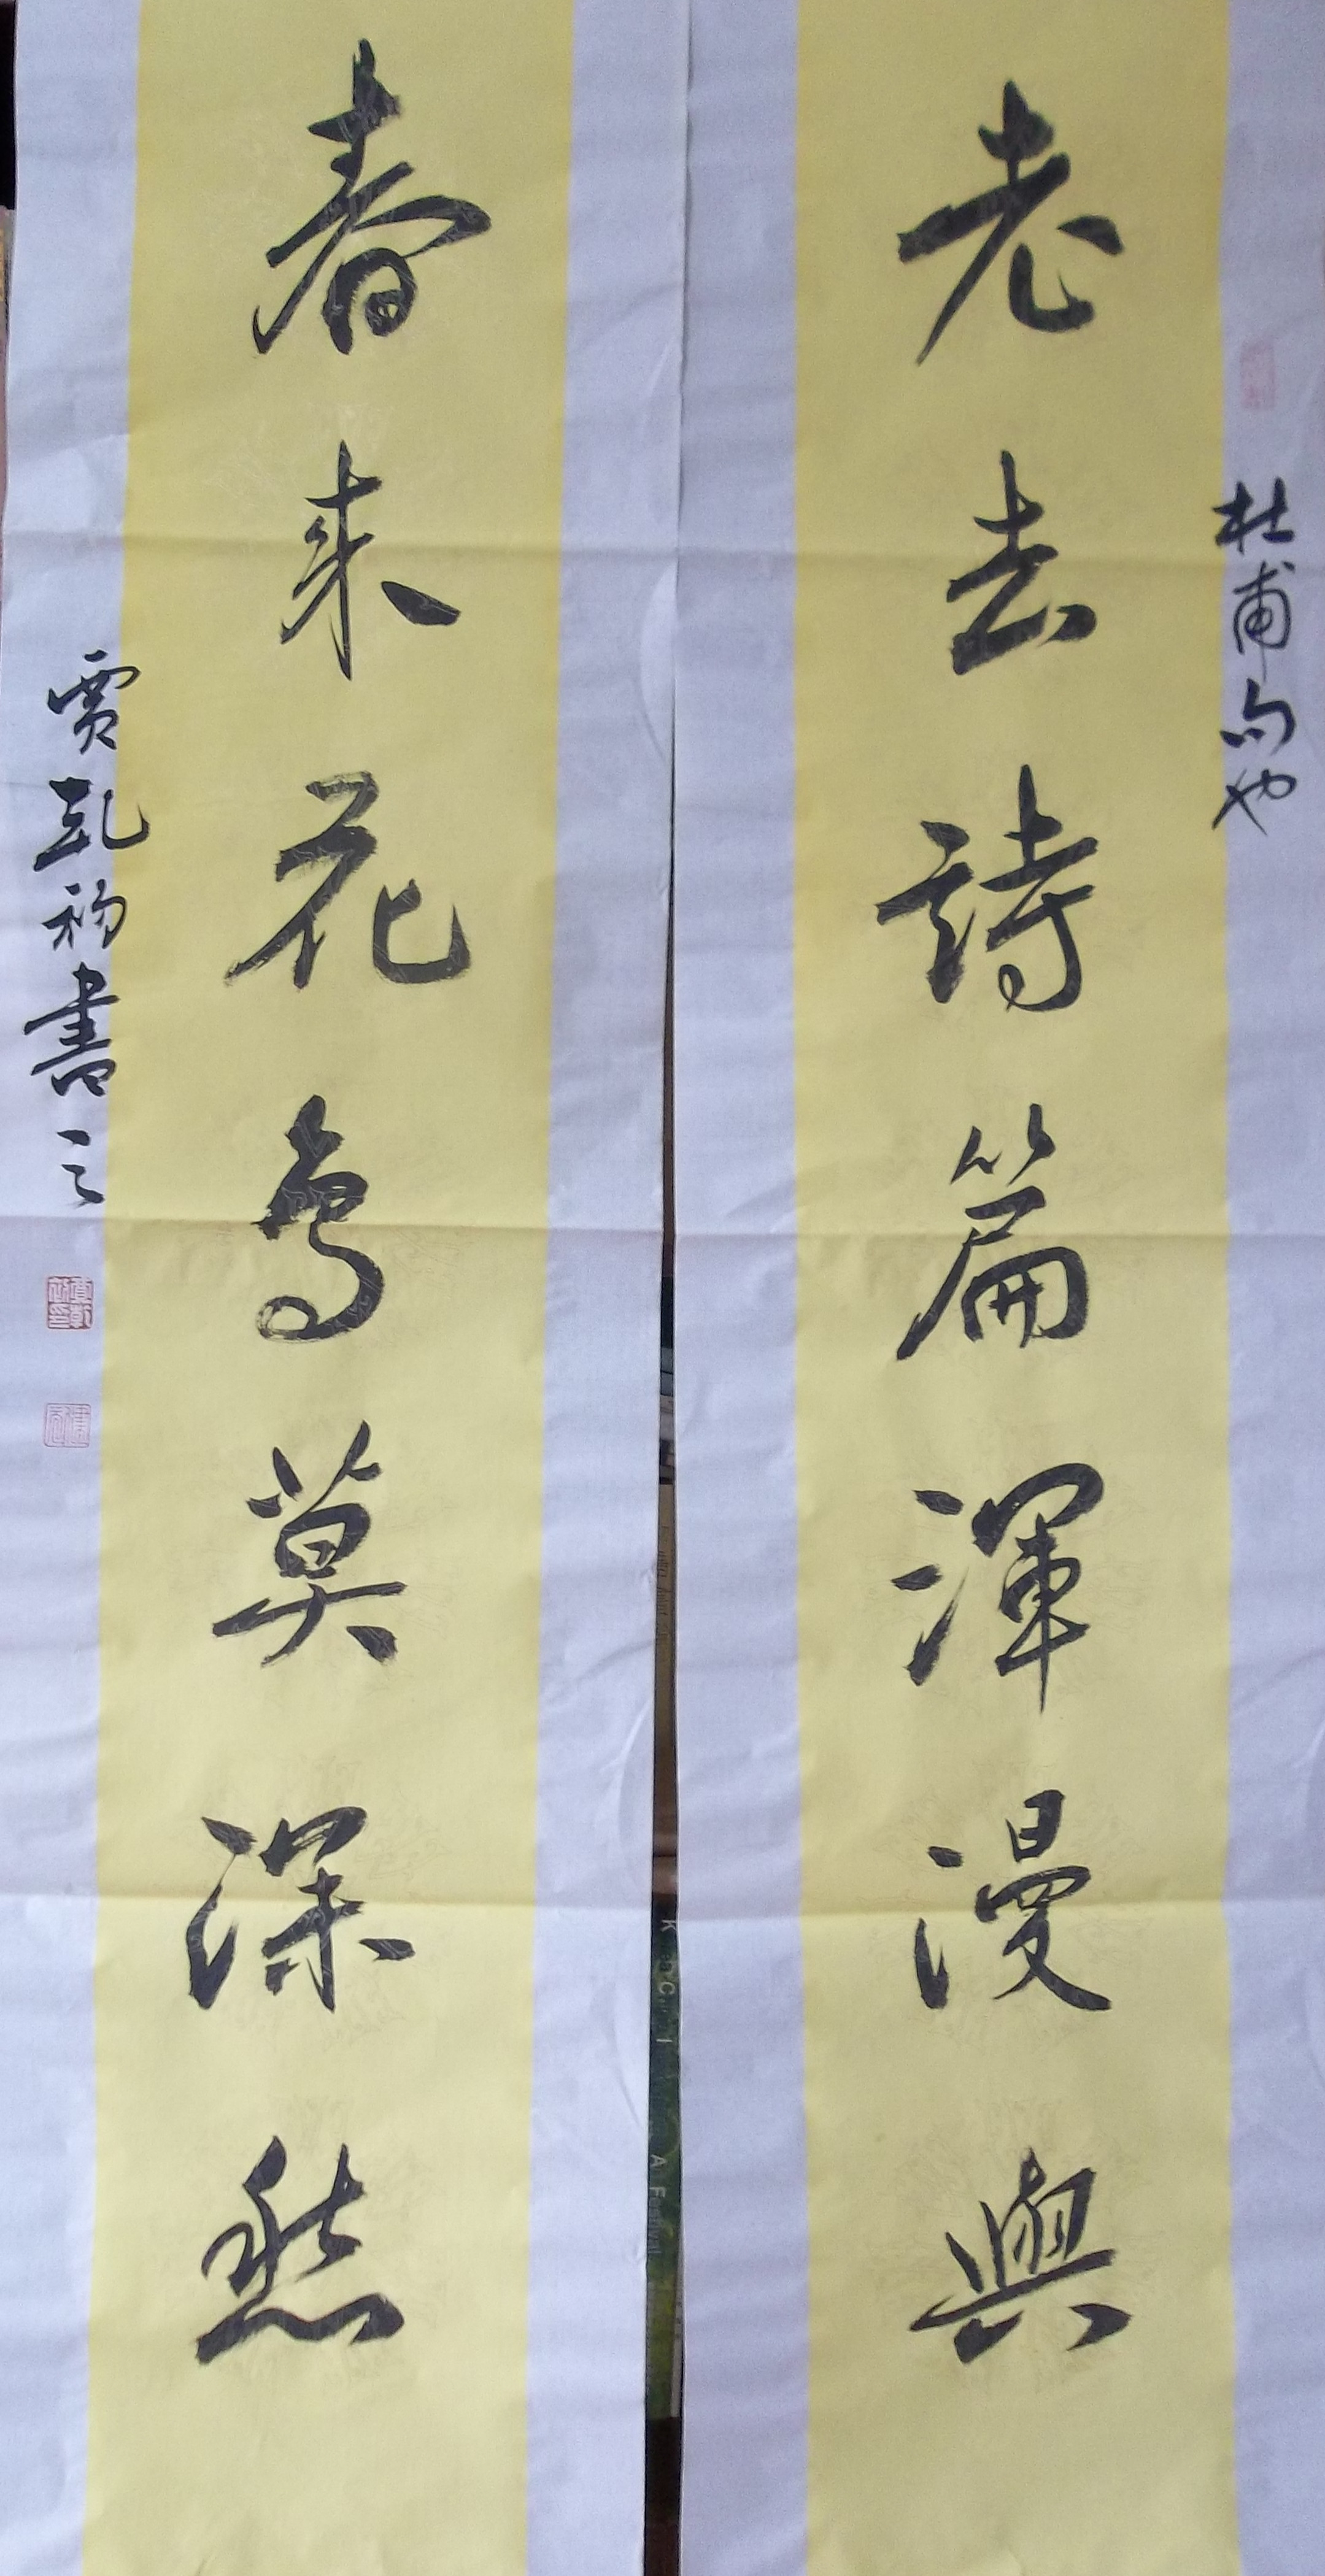 杜甫句也
老去詩篇渾漫與
春來花鳥莫深愁
賈乾初書之